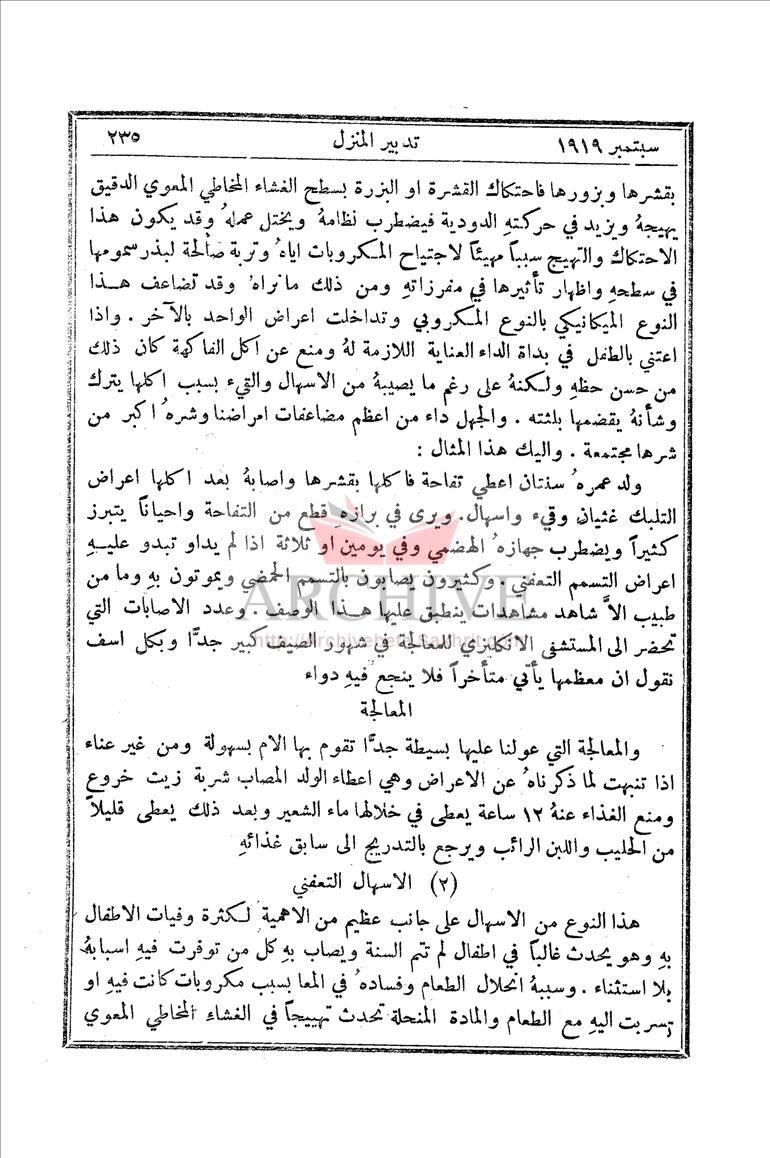 سبتمبر ١٩١٩ تدبير المنزل ٢٣٥
بقشرها وبزورها فاحتكاك القشرة او البزرة بسطح الغشاء المخاطي المعوي الدقيق
يهيجهُ ويزيد في حركتهِ الدودية فيضطرب نظامهُ ويختل عملهُ وقد يكون هذا
الاحتكاك والتهيج سبباً مهيئاً لاجتياح المكروبات اياهُ وتربة صالحة لبذر سمومها
في سطحهِ واظهار تأثيرها في مفرزاتهِ ومن ذلك ما نراهُ وقد تضاعف هذا
النوع الميكانيكي بالنوع المكروبي وتداخلت اعراض الواحد بالآخر . واذا
اعتني بالطفل في بداة الداء العناية اللازمة لهُ ومنع عن اكل الفاكهة كان ذلك
من حسن حظهِ ولكنهُ على رغم ما يصيبهُ من الاسهال والقيء بسبب اكلها يترك
وشأنهُ يقضمها بلثته . والجهل داء من اعظم مضاعفات امراضنا وشرهُ اكبر من
شرها مجتمعة . واليك هذا المثال :
ولد عمرهُ سنتان اعطي تفاحة فاكلها بقشرها واصابهُ بعد اكلها اعراض
التلبك غثيان وقيء واسهال. ويرى في برازهِ قطع من التفاحة واحياناً يتبرز
كثيراً ويضطرب جهازهُ الهضمي وفي يومين او ثلاثة اذا لم يداو تبدو عليهِ
اعراض التسمم التعفني . وكثيرون يصابون بالتسمم الحمضي ويموتون بهِ وما من
طبيب الاَّ شاهد مشاهدات ينطبق عليها هذا الوصف . وعدد الاصابات التي
تحضر الى المستشفى الانكليزي للمعالجة في شهور الصيف كبير جدًّا وبكل اسف
نقول ان معظمها يأتي متأخراً فلا ينجع فيهِ دواء
المعالجة
والمعالجة التي عولنا عليها بسيطة جدًّا تقوم بها الام بسهولة ومن غير عناء
اذا تنبهت لما ذكرناهُ عن الاعراض وهي اعطاء الولد المصاب شربة زيت خروع
ومنع الغذاء عنهُ ١٢ ساعة يعطى في خلالها ماء الشعير وبعد ذلك يعطى قليلاً
من الحليب واللبن الرائب ويرجع بالتدريج الى سابق غذائهِ
(٢) الاسهال التعفني
هذا النوع من الاسهال على جانب عظيم من الاهمية لكثرة وفيات الاطفال
بهِ وهو يحدث غالباً في اطفال لم تتم السنة ويصاب بهِ كل من توفرت فيهِ اسبابهُ
بلا استثناء . وسببهُ انحلال الطعام وفسادهُ في المعا بسبب مكروبات كانت فيهِ او
تسربت اليهِ مع الطعام والمادة المنحلة تحدث تهييجاً في الغشاءِ المخاطي المعوي
ARCHIVE